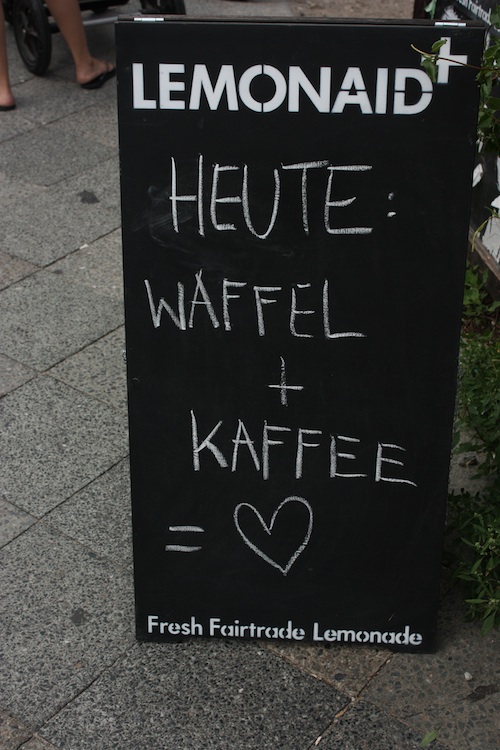 LEMONAID+
HEUTE:
WAFFEL
+
KAFFEE
= ♡
Fresh Fairtrade Lemonade